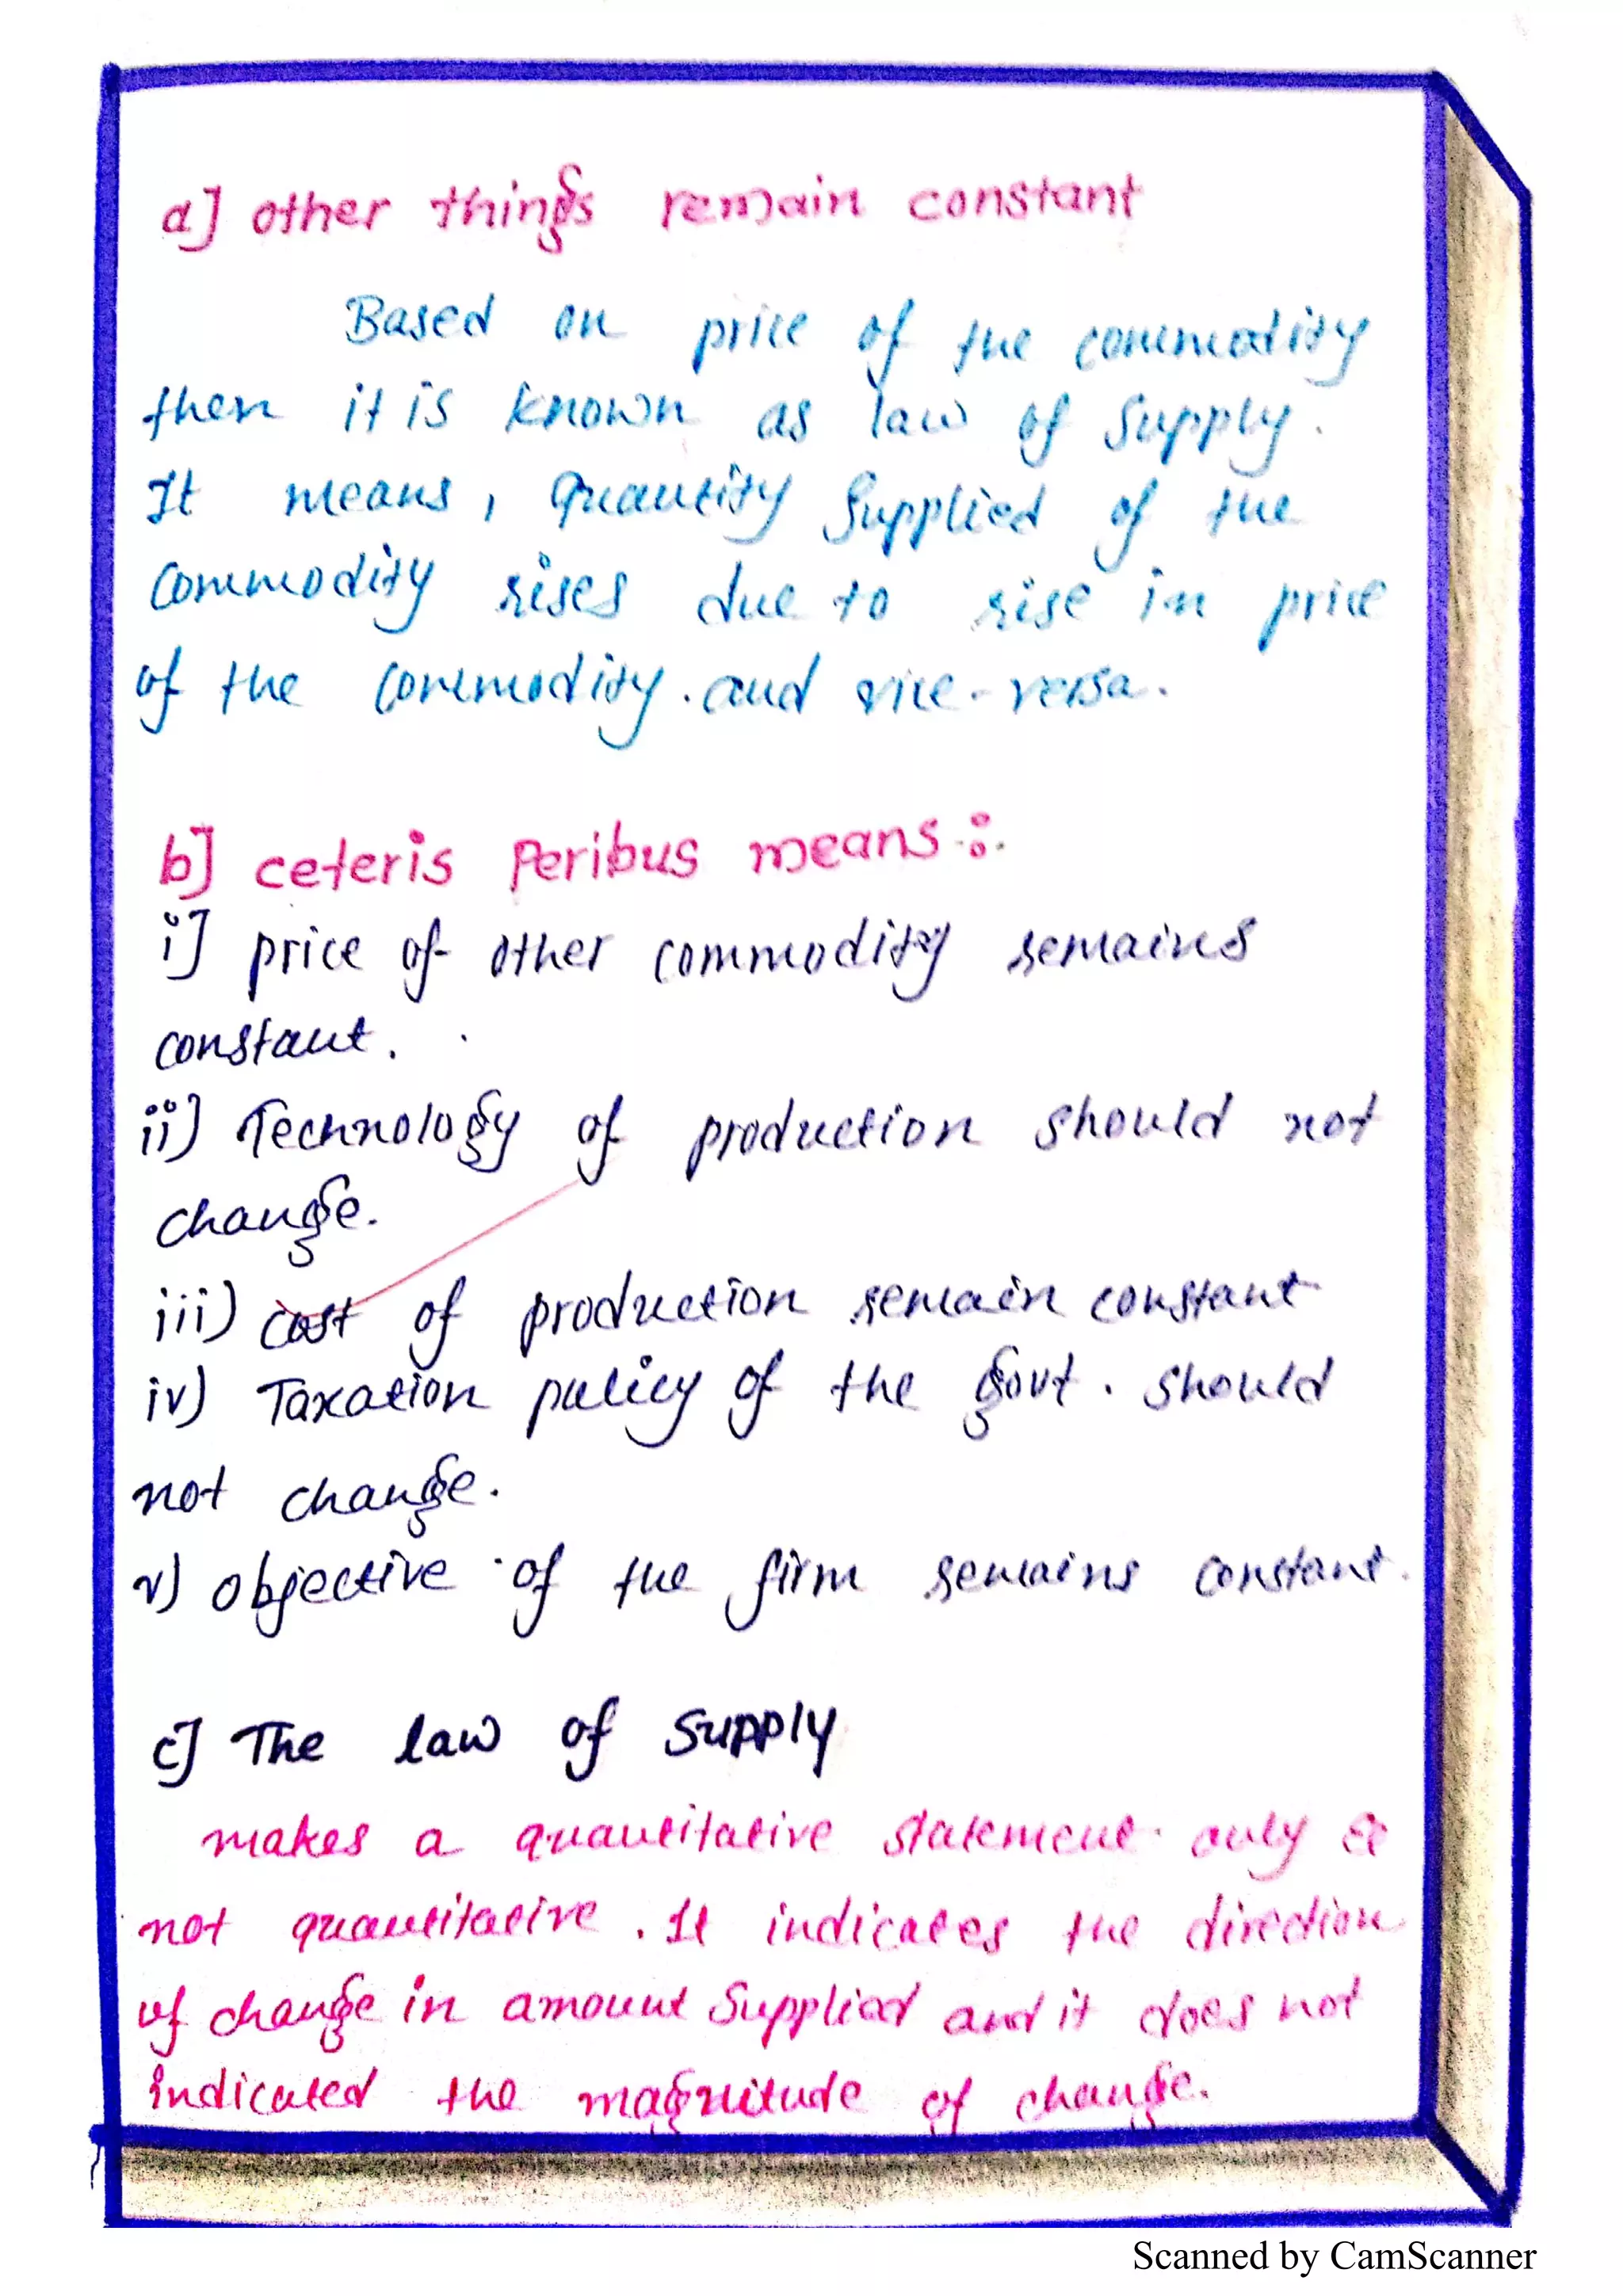 a] other things remain constant
Based on price of the commodity
then it is known as law of supply.
It means, Quantity Supplied of the
commodity rises due to rise in price
of the commodity. and vice-versa.
b] ceteris Peribus means :.
i] price of other commodity remains
constant.
ii) Technology of production should not
change.
iii) cost of production remain constant
iv) Taxation policy of the govt. should
not change.
v) objective of the firm remains constant.
c] The law of Supply
makes a quantitative statement only &
not quantitative. It indicates the direction
of change in amount Supplied and it does not
indicated the magnitude of change.
Scanned by CamScanner